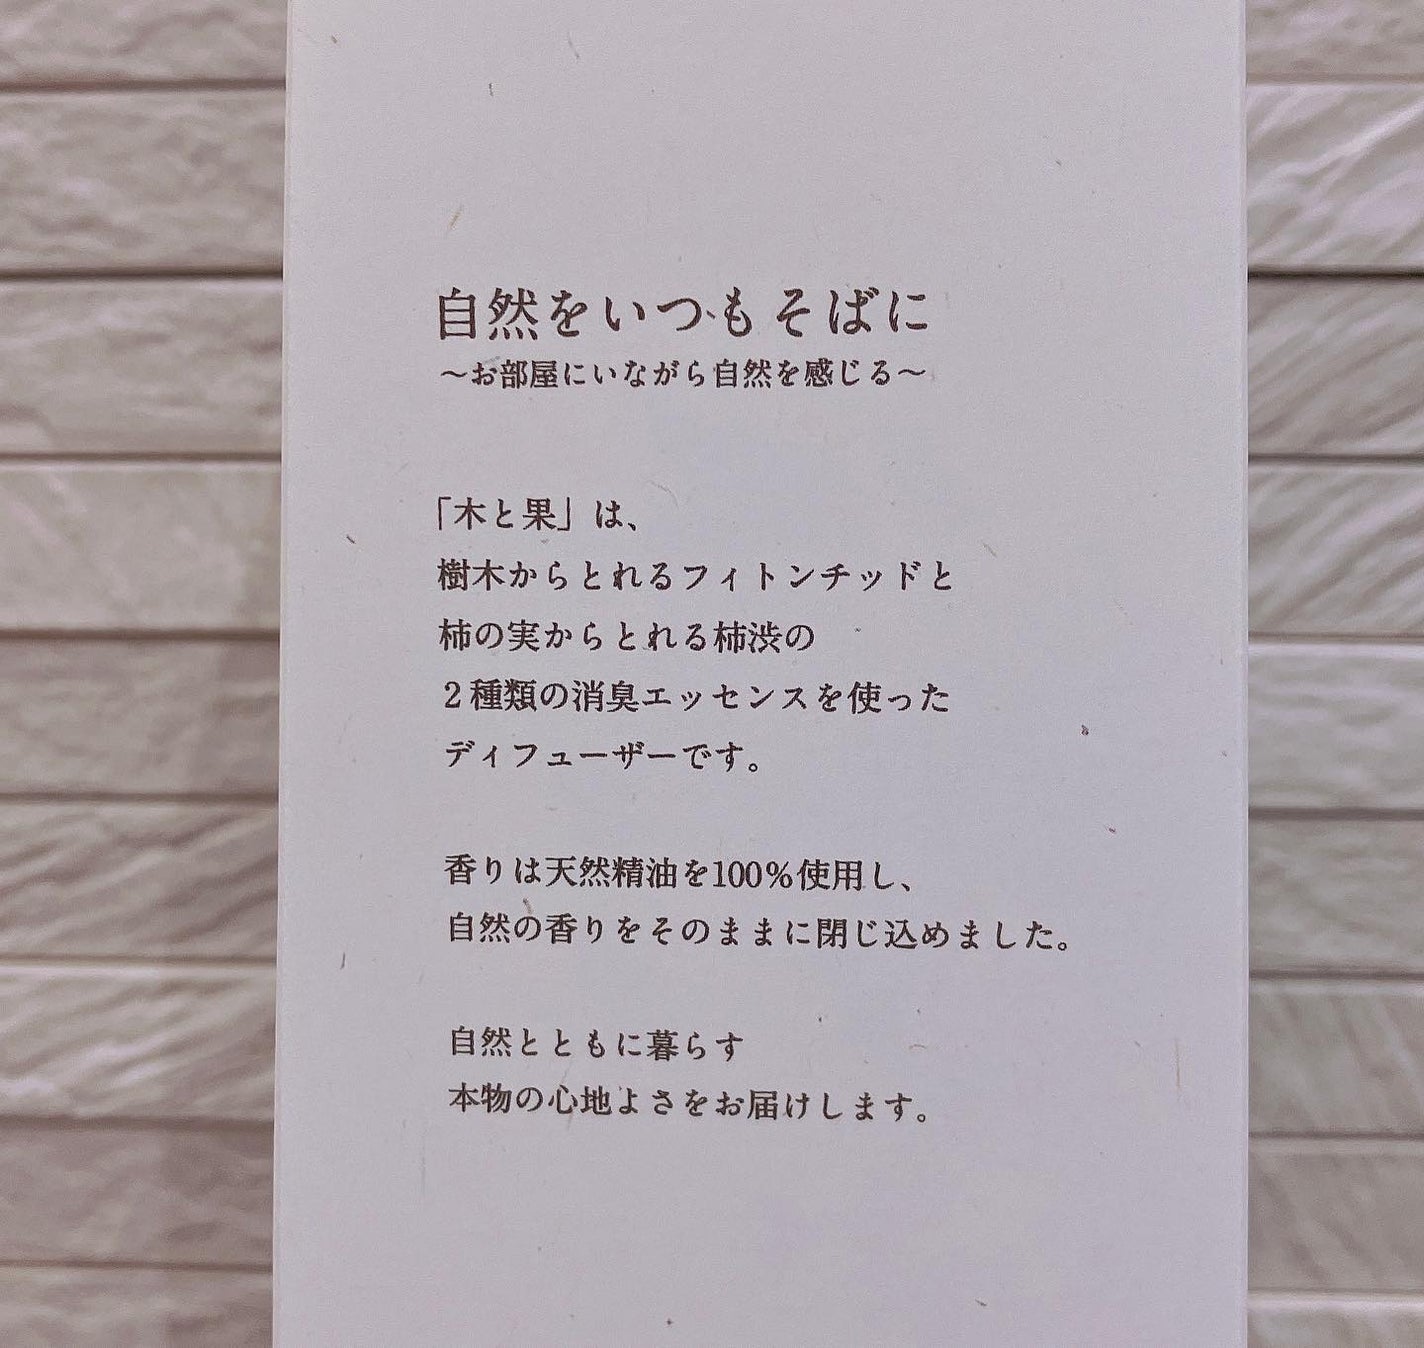 自然をいつもそばに
～お部屋にいながら自然を感じる～
「木と果」は、
樹木からとれるフィトンチッドと
柿の実からとれる柿渋の
2種類の消臭エッセンスを使った
ディフューザーです。
香りは天然精油を100%使用し、
自然の香りをそのままに閉じ込めました。
自然とともに暮らす
本物の心地よさをお届けします。